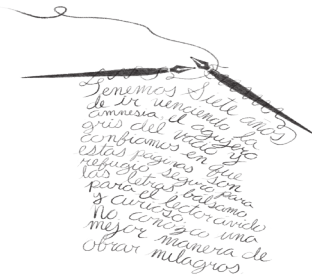 Tenemos Siete años
de ir venciendo la
amnesia, el agujero
gris del vacío y
confiamos en que
estas páginas son
refugio seguro para
las letras, bálsamo
para el lector ávido
y curioso.
No conozco una
mejor manera de
obrar milagros